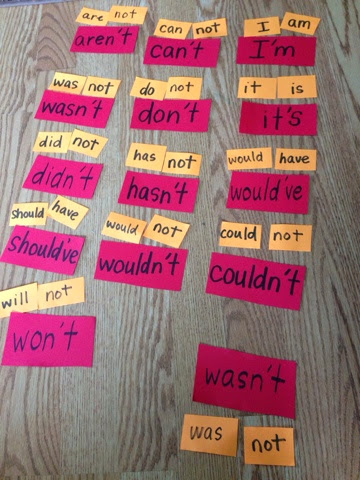 are not can not I am
aren't can't I'm
was not do not it is
wasn't don't it's
did not has not would have
didn't hasn't would've
should have would not could not
should've wouldn't couldn't
will not
won't
wasn't
was not